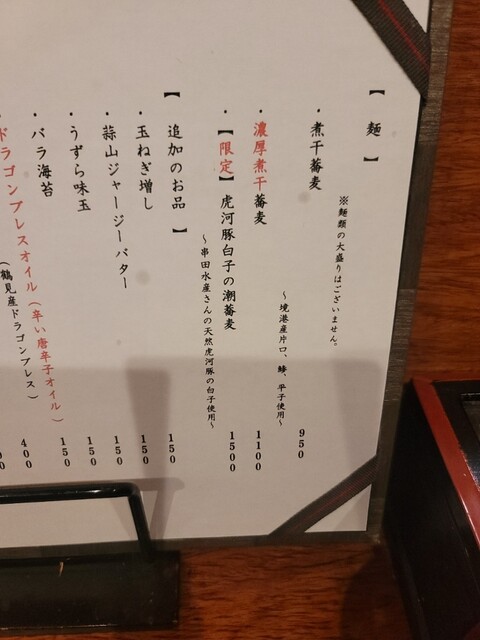 【麺】
※麺類の大盛りはございません。
・煮干蕎麦 950
～境港産片口、鯵、平子使用～
・濃厚煮干蕎麦 1100
・【限定】虎河豚白子の潮蕎麦 1500
～串田水産さんの天然虎河豚の白子使用～
【追加のお品】 150
・玉ねぎ増し 150
・蒜山ジャージーバター 150
・うずら味玉 150
・バラ海苔 150
ドラゴンブレスオイル（辛い唐辛子オイル） 400
（鶴見産ドラゴンブレス）